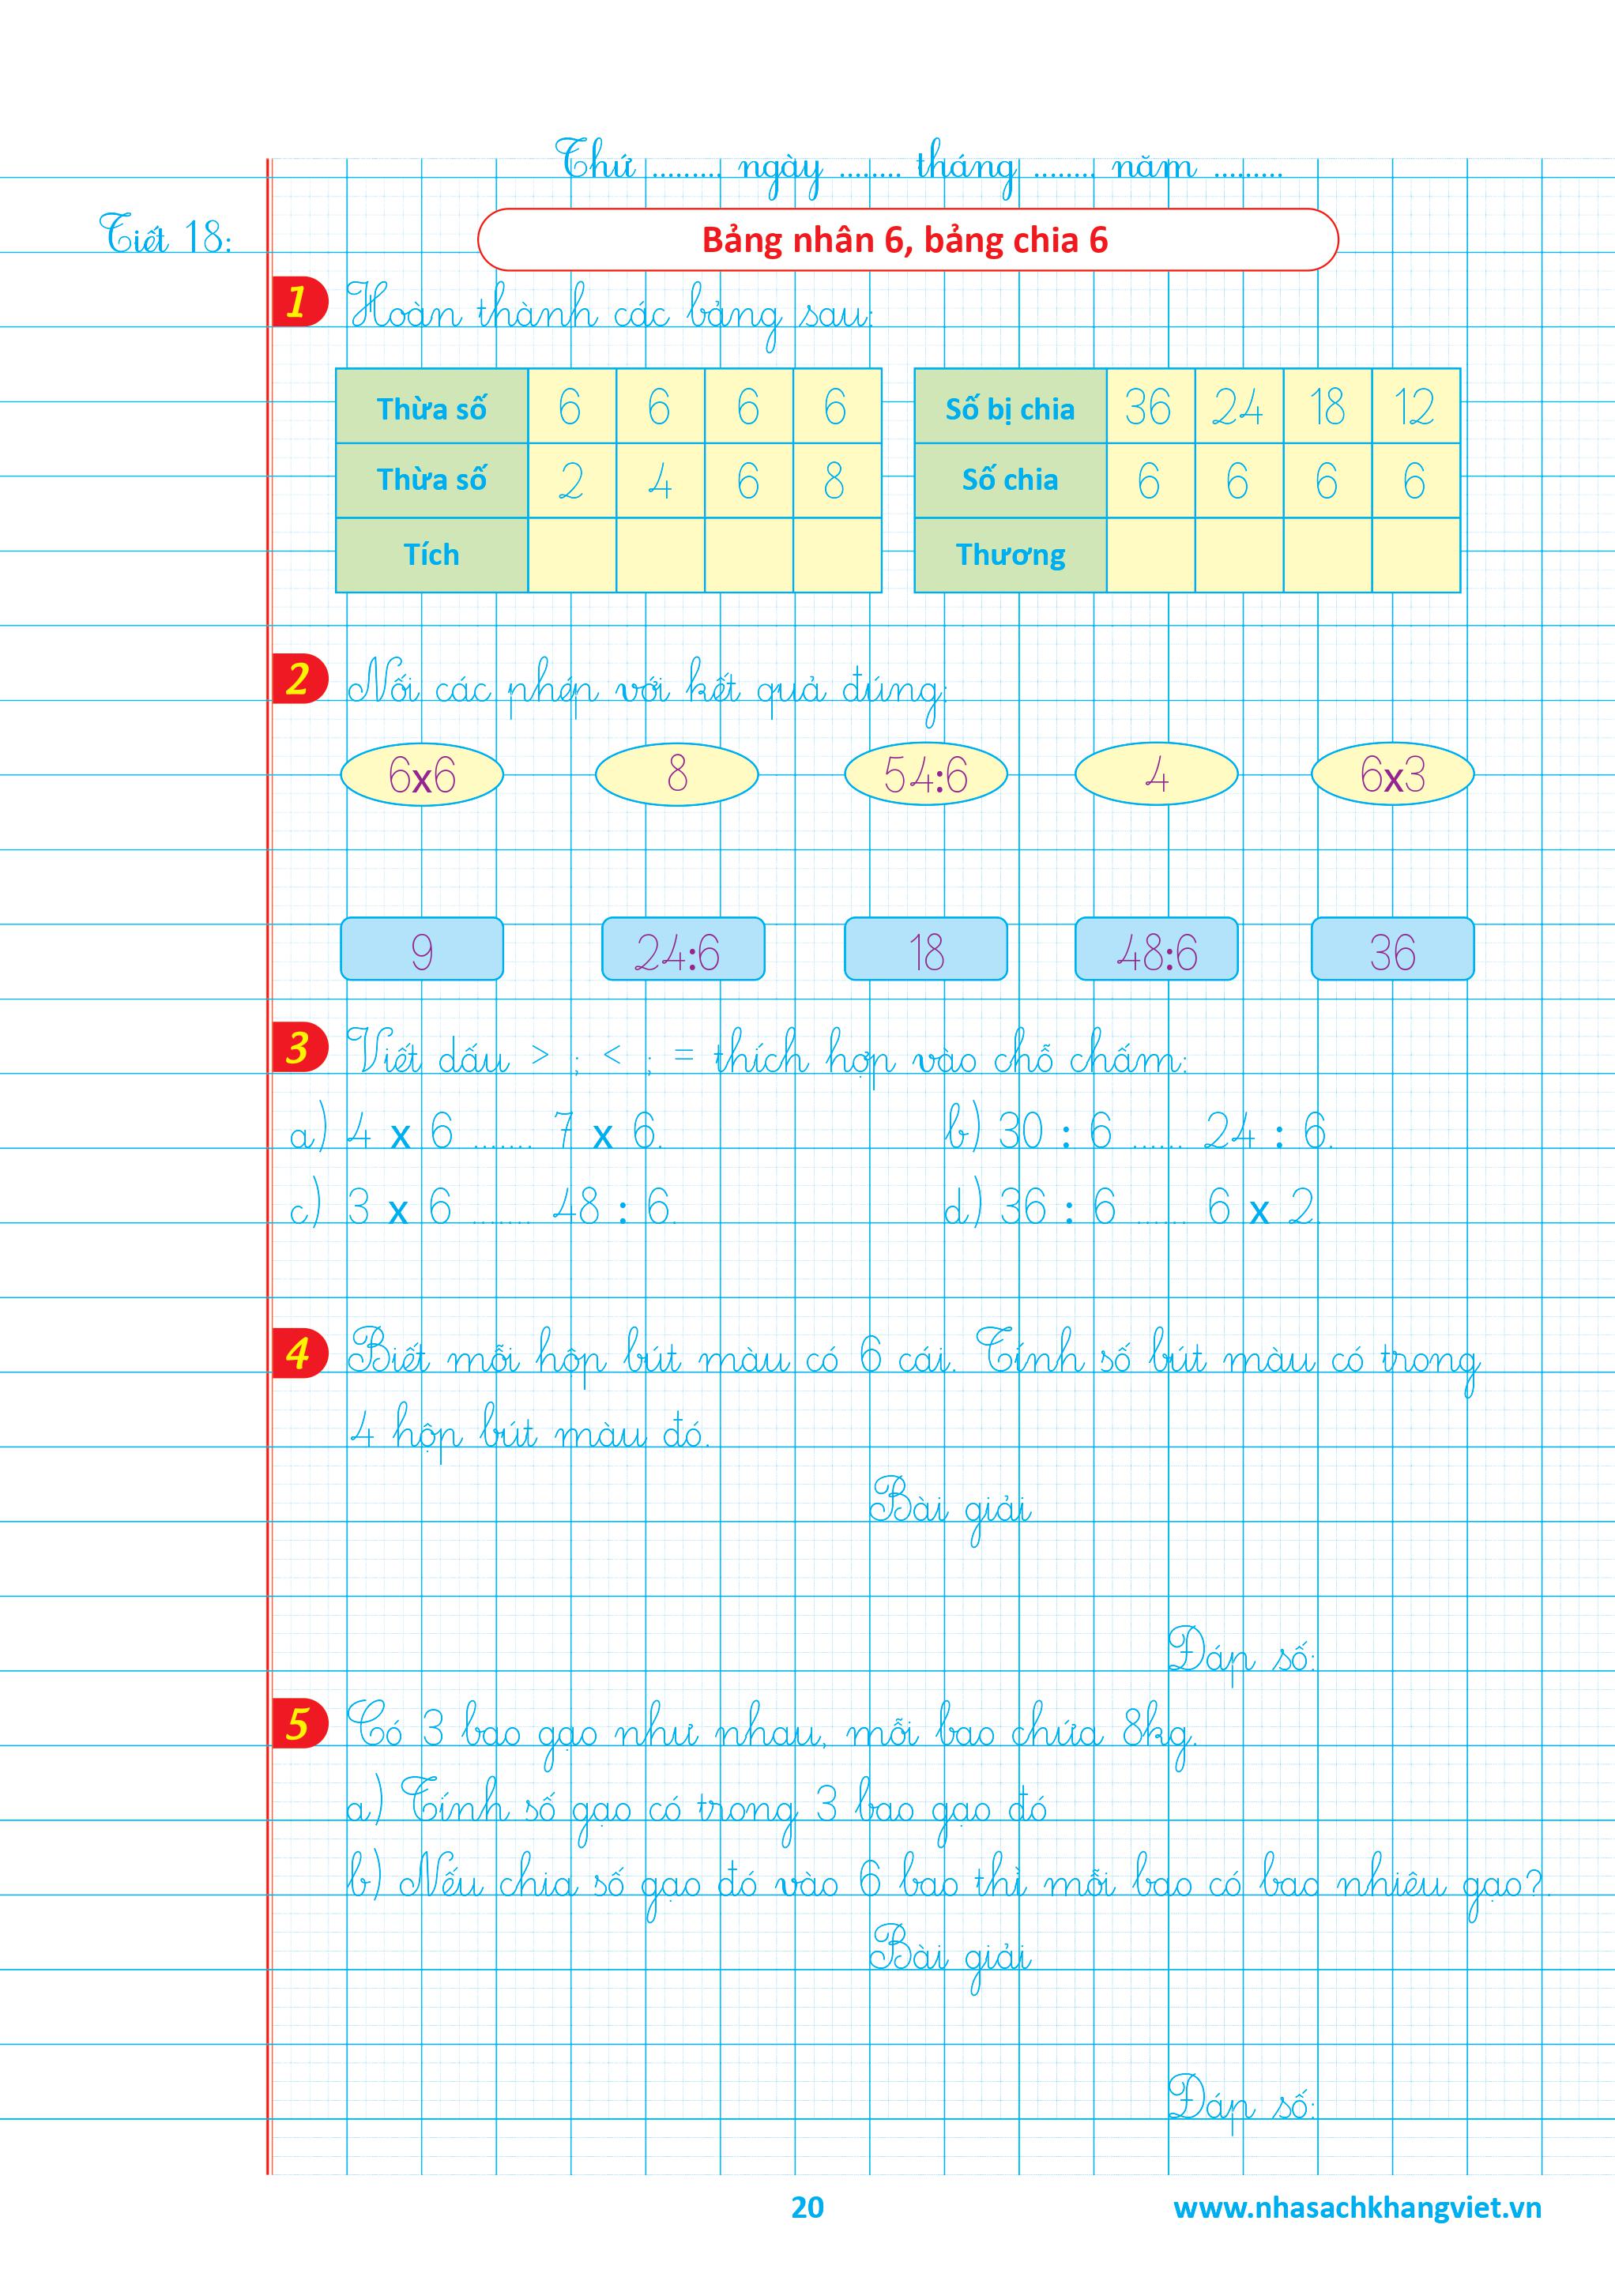 Thứ ......... ngày ........ tháng ........ năm .........
Tiết 18:
Bảng nhân 6, bảng chia 6
1 Hoàn thành các bảng sau:
Thừa số 6 6 6 6
Thừa số 2 4 6 8
Tích
Số bị chia 36 24 18 12
Số chia 6 6 6 6
Thương
2 Nối các phép với kết quả đúng:
6x6 8 54:6 4 6x3
9 24:6 18 48:6 36
3 Viết dấu > ; < ; = thích hợp vào chỗ chấm:
a) 4 x 6 ....... 7 x 6. b) 30 : 6 ...... 24 : 6.
c) 3 x 6 ....... 48 : 6. d) 36 : 6 ...... 6 x 2.
4 Biết mỗi hộp bút màu có 6 cái. Tính số bút màu có trong
4 hộp bút màu đó.
Bài giải
Đáp số:
5 Có 3 bao gạo như nhau, mỗi bao chứa 8kg.
a) Tính số gạo có trong 3 bao gạo đó
b) Nếu chia số gạo đó vào 6 bao thì mỗi bao có bao nhiêu gạo?.
Bài giải
Đáp số:
20
www.nhasachkhangviet.vn